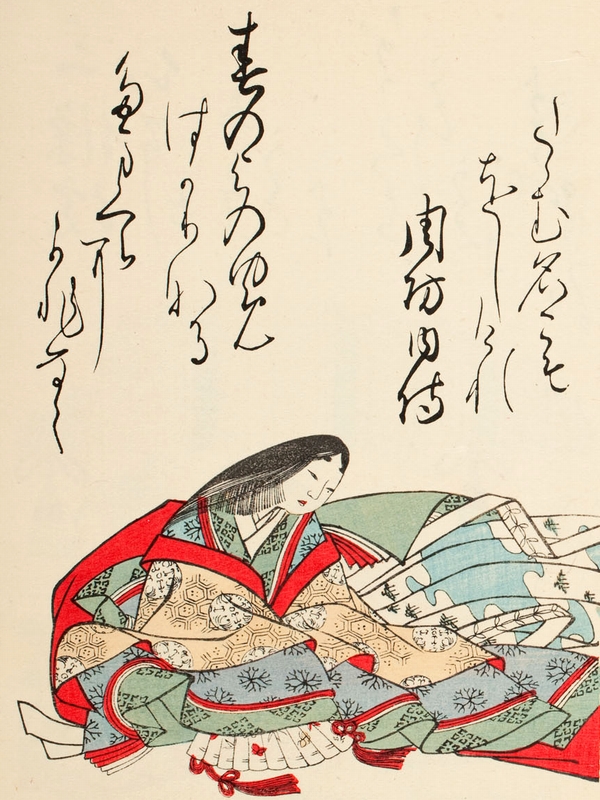 周防内侍
春のよのゆめ
はかりなる
たまくらに
かひなく
たゝむ名こそ
をしけれ